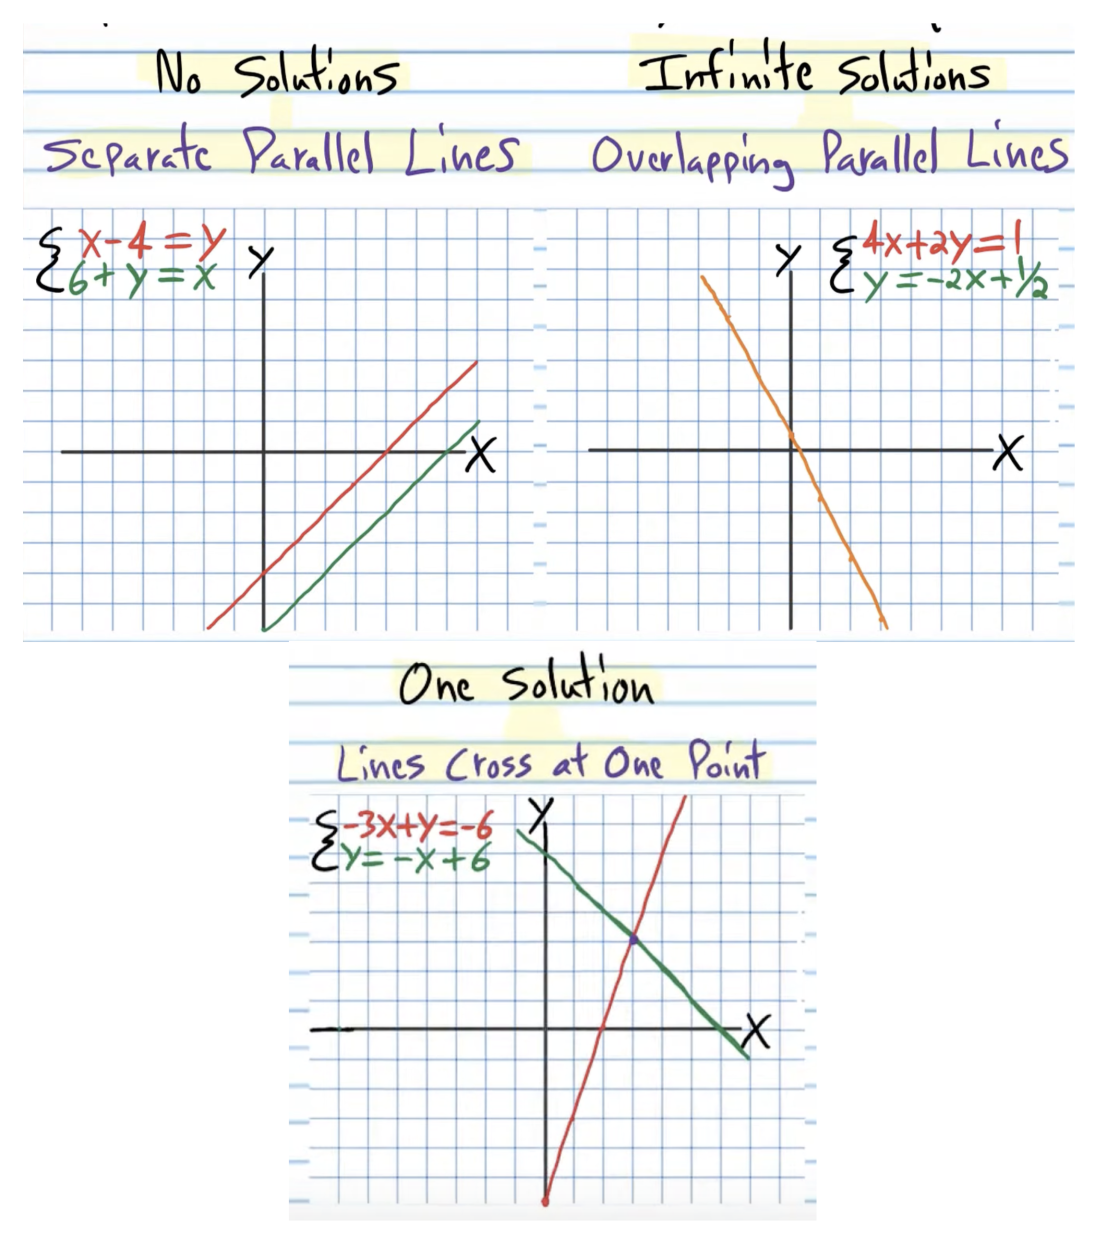 No Solutions
Separate Parallel Lines
{ x-4=y
6+y=x
Y
X
Infinite Solutions
Overlapping Parallel Lines
Y
{ 4x+2y=1
y=-2x+1/2
X
One Solution
Lines Cross at One Point
{ -3x+y=-6
y=-x+6
Y
X